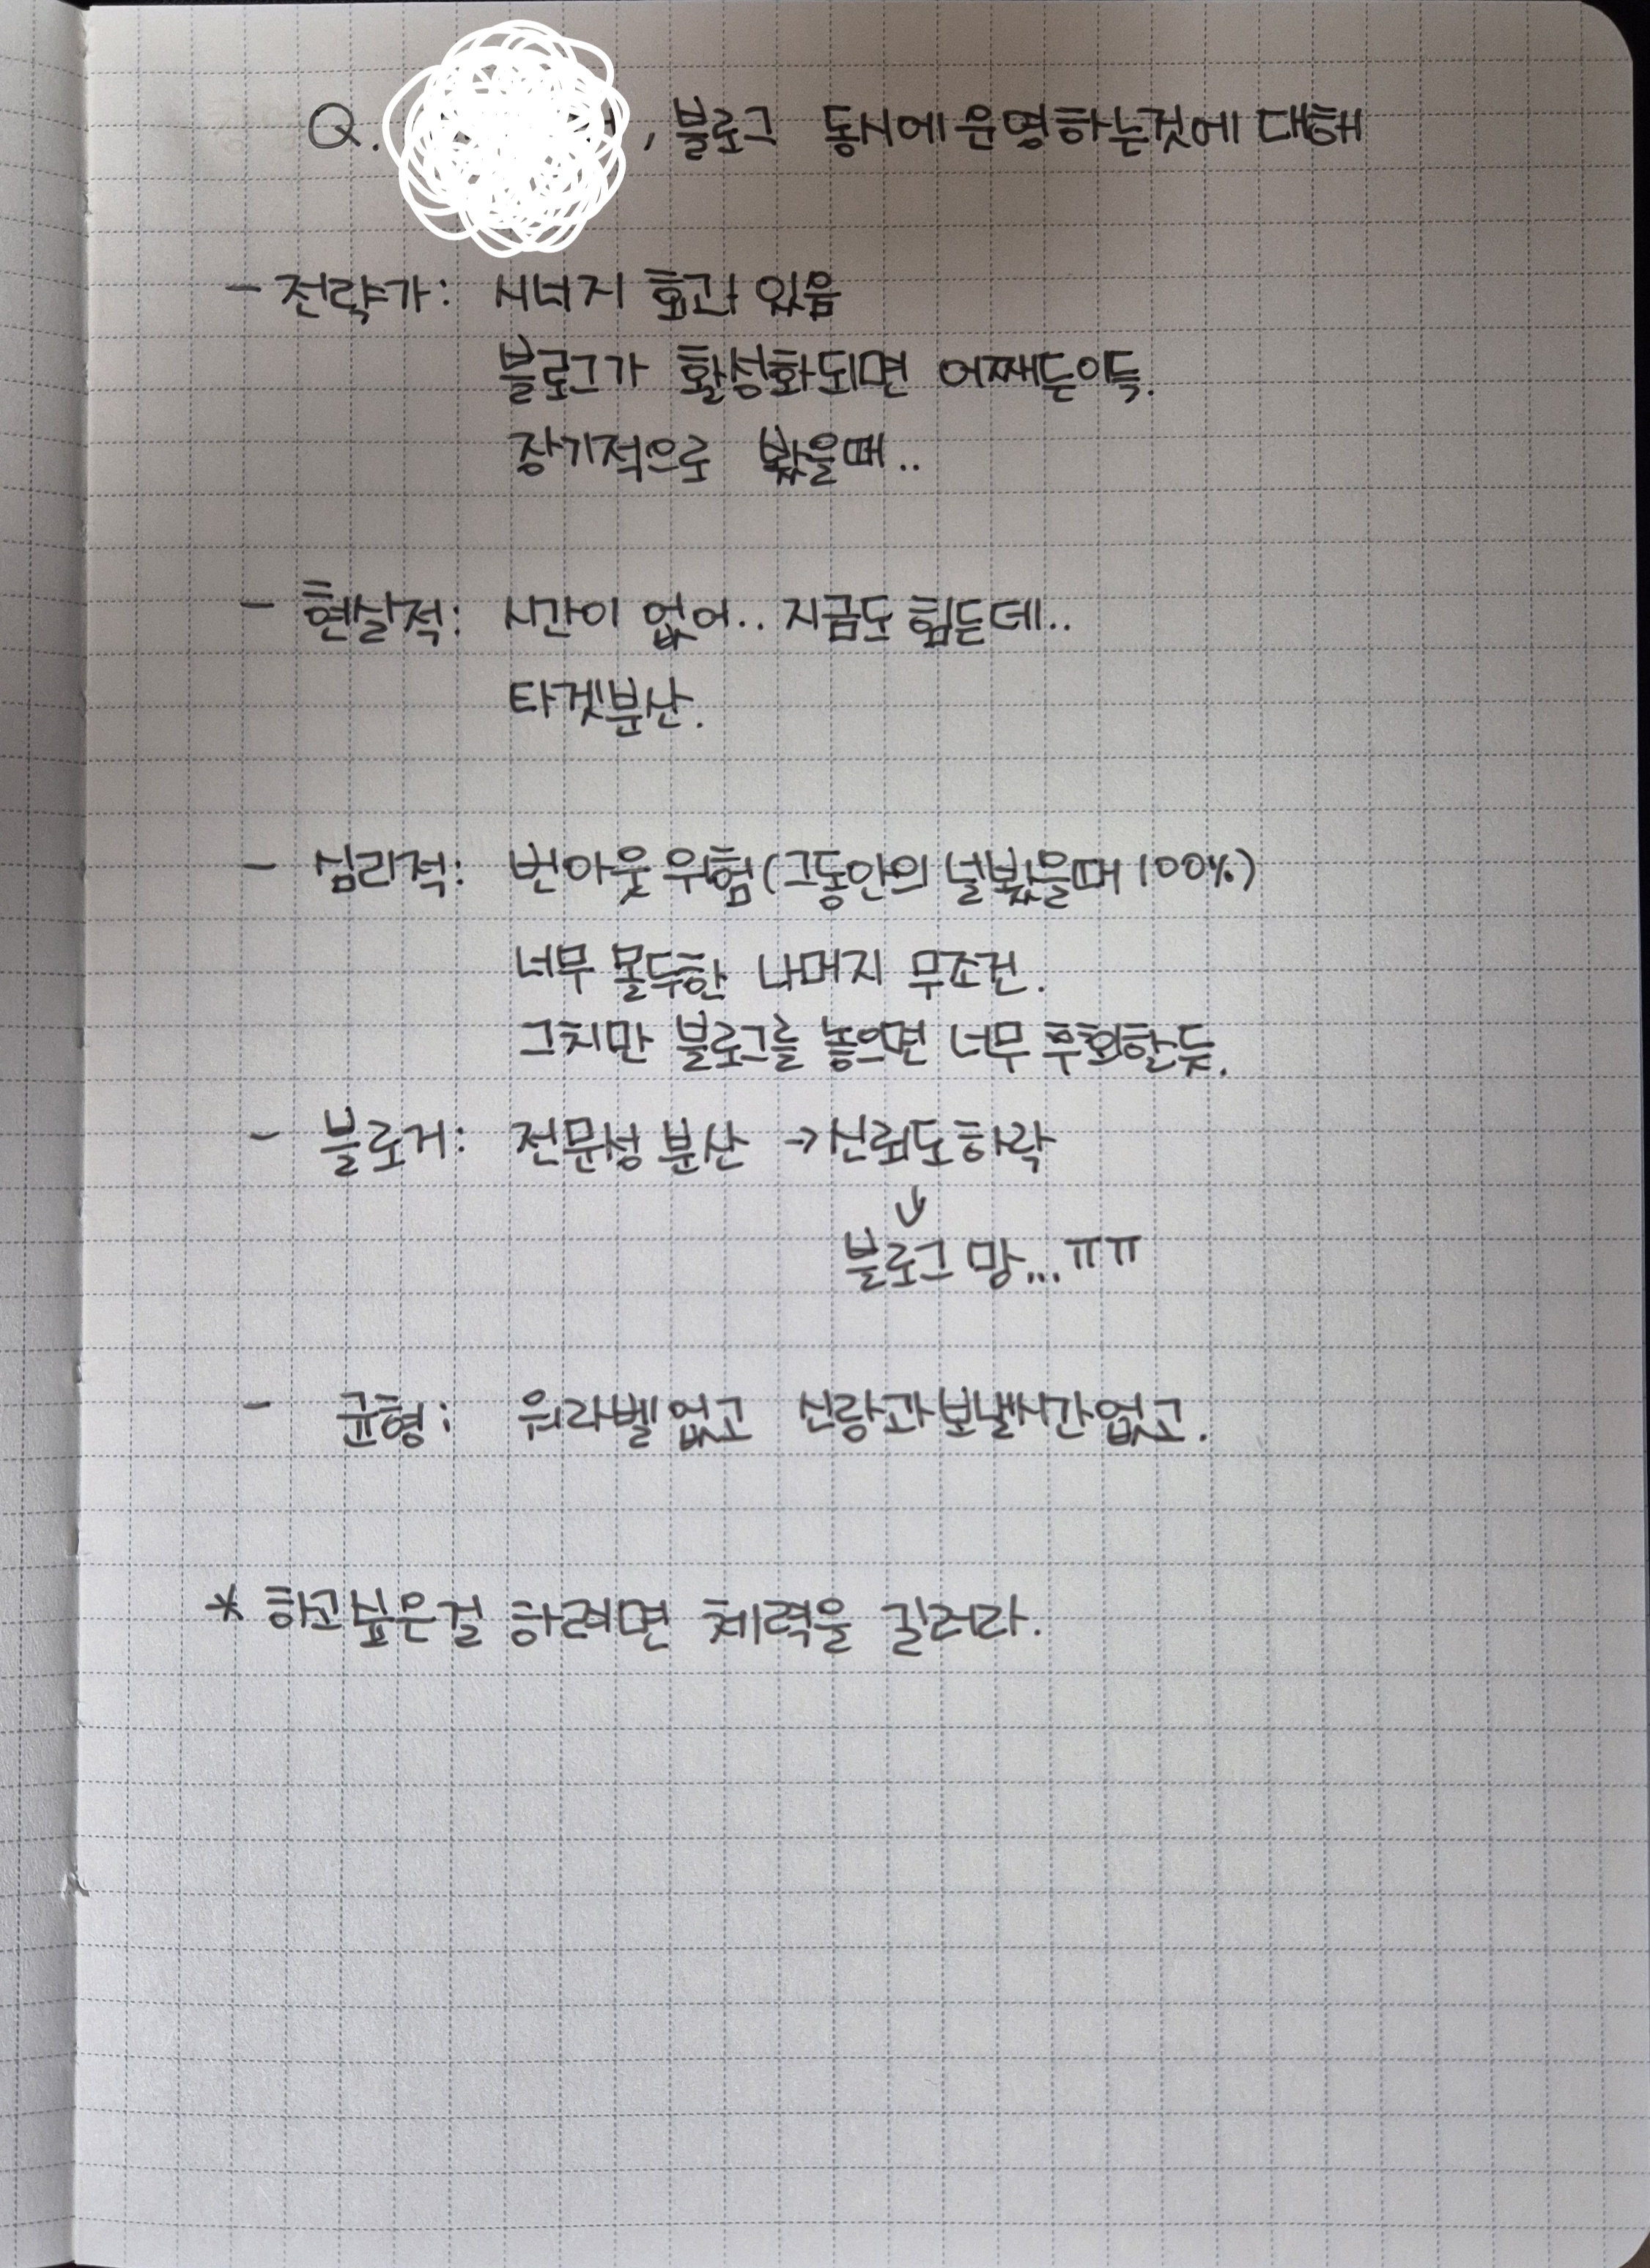 Q. , 블로그 동시에 운영하는것에 대해
- 전략가: 시너지 효과 있음
블로그가 활성화되면 어쨰든이득.
장기적으로 봤을때..
- 현실적: 시간이 없어.. 지금도 힘든데..
타겟분산.
- 심리적: 번아웃 위험(그동안의 널봤을때 100%)
너무 몰두한 나머지 무조건.
그치만 블로그를 놓으면 너무 후회할듯.
- 블로거: 전문성 분산 →신뢰도하락
↓
블로그 망...ㅠㅠ
- 균형: 워라벨없고 신랑과보낼시간없고.
* 하고싶은걸 하려면 체력을 길러라.